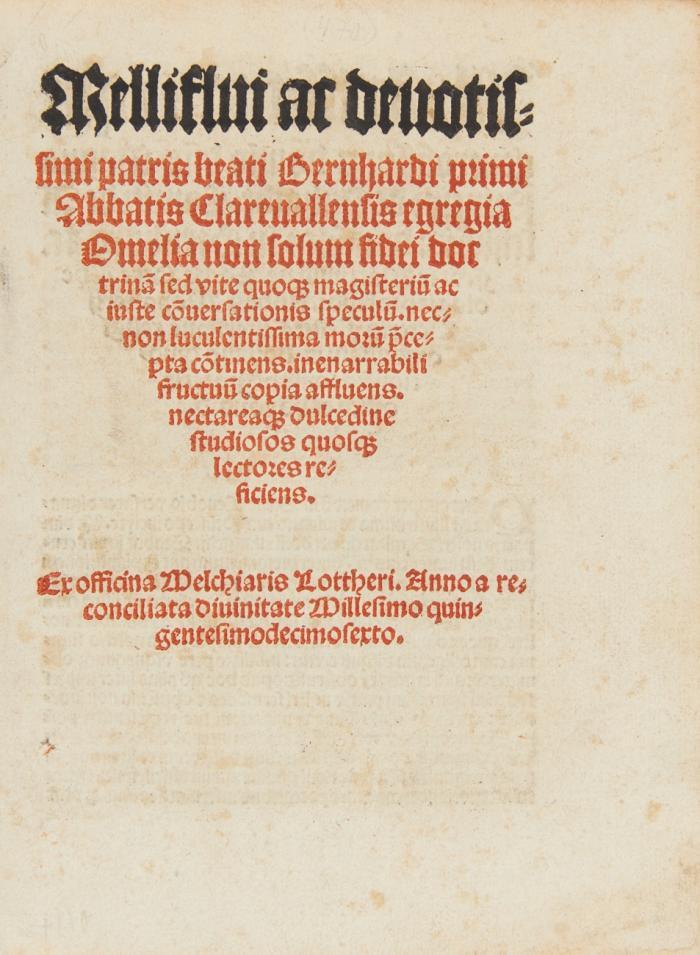 Melliflui ac deuotis-
simi patris beati Bernhardi primi
Abbatis Clareuallensis egregia
Omelia non solum fidei doc
trinā sed vite quoqꝫ magisteriū ac
iuste cōuersationis speculū. nec-
non luculentissima morū p̄ce-
pta cōtinens. inenarrabili
fructuū copia affluens.
nectareaqꝫ dulcedine
studiosos quosqꝫ
lectores re-
ficiens.
Ex officina Melchiaris Lottheri. Anno a re-
conciliata diuinitate Millesimo quin-
gentesimodecimosexto.